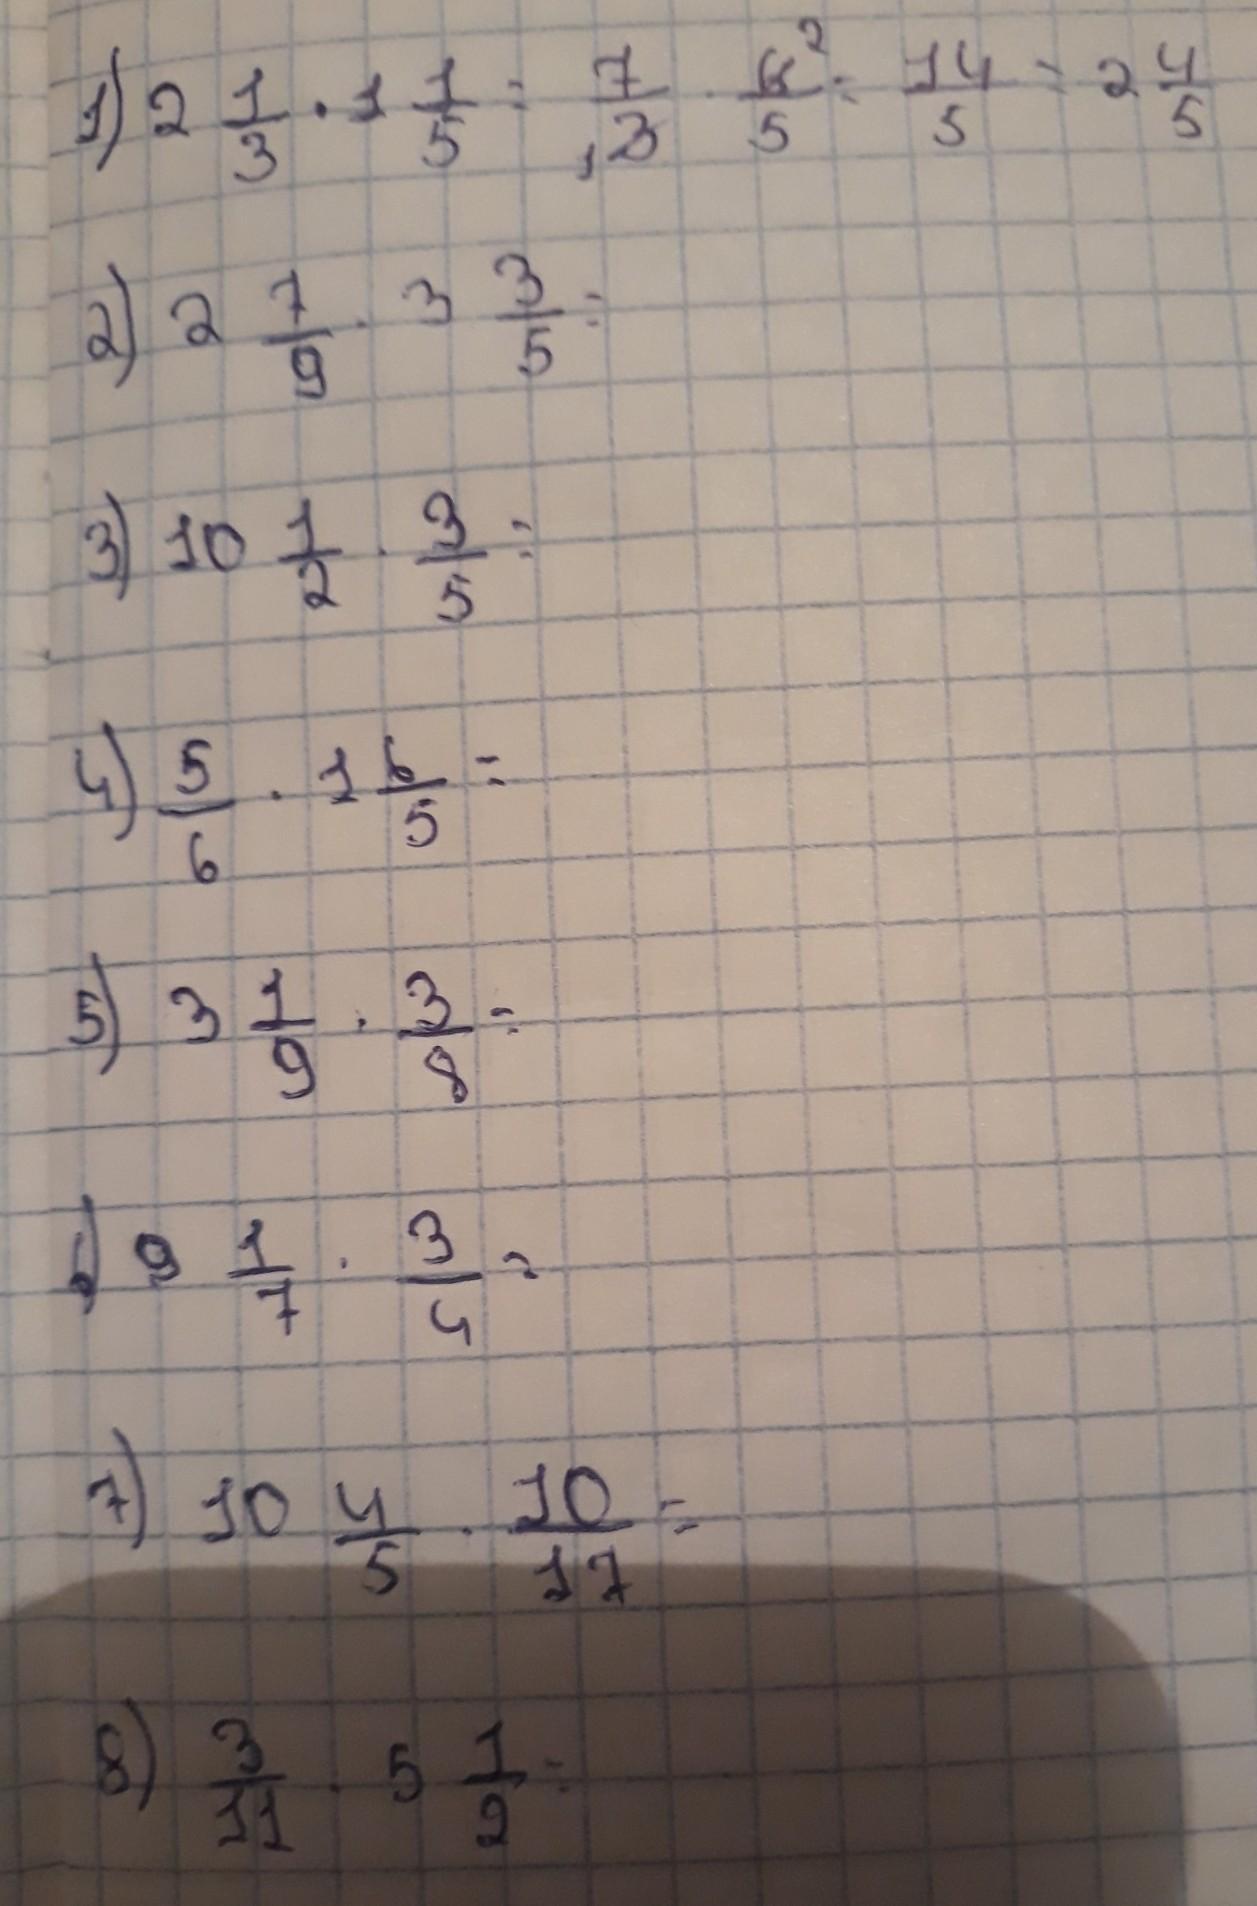 1) 2 1/3 · 1 1/5 = 7/3 · 6/5 = 14/5 = 2 4/5
2) 2 7/9 · 3 3/5 =
3) 10 1/2 · 3/5 =
4) 5/6 · 1 6/5 =
5) 3 1/9 · 3/8 =
6) 9 1/7 · 3/4 =
7) 10 4/5 · 10/17 =
8) 3/11 · 5 1/2 =